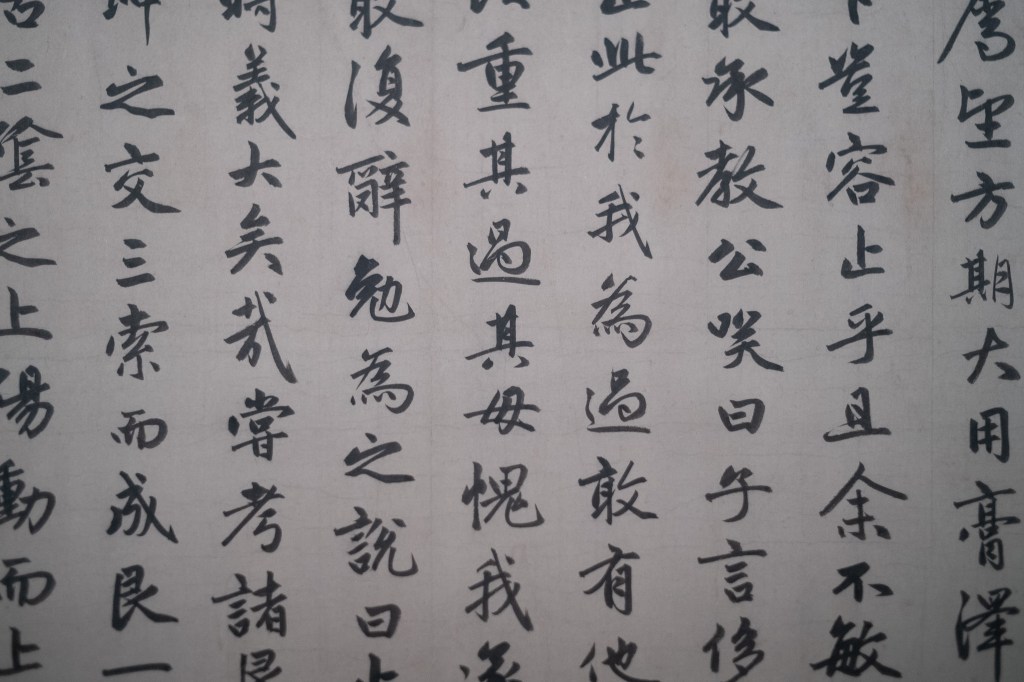 望方期大用膏澤
豈容止乎且余不敏
敢承教公咲曰子言侈
此於我為過敢有他
重其過其毋愧我
敢復辭勉為之說曰
時義大矣哉嘗考諸
坤之交三索而成艮一
二陰之上陽動而上